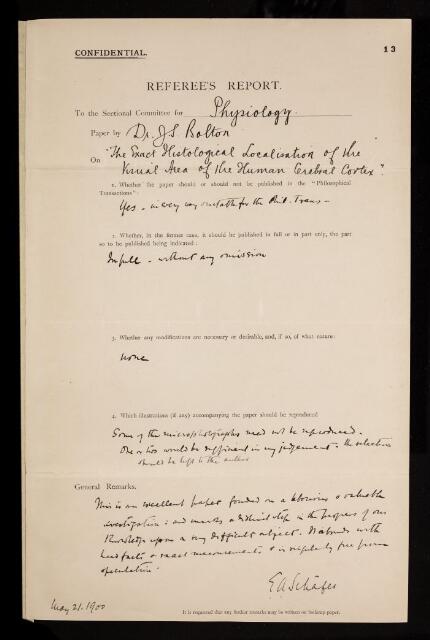 CONFIDENTIAL.
13
REFEREE'S REPORT.
To the Sectional Committee for Physiology.
Paper by Dr. J S Bolton
On "The Exact Histological Localisation of the
Visual Area of the Human Cerebral Cortex".
1. Whether the paper should or should not be published in the "Philosophical
Transactions":
Yes - in every way suitable for the Phil. Trans -
2. Whether, in the former case, it should be published in full or in part only, the part
so to be published being indicated:
In full - without any omission
3. Whether any modifications are necessary or desirable, and, if so, of what nature:
none
4. Which illustrations (if any) accompanying the paper should be reproduced
Some of the microphotographs need not be reproduced.
One or two would be sufficient in my judgement. the selection
should be left to the author
General Remarks.
This is an excellent paper founded on a laborious & valuable
investigation: and marks a distinct step in the progress of our
knowledge upon a very difficult subject. It abounds with
hard facts & exact measurements & is singularly free from
speculation.
E A Schäfer
May 21. 1900
It is requested that any further remarks may be written on foolscap paper.